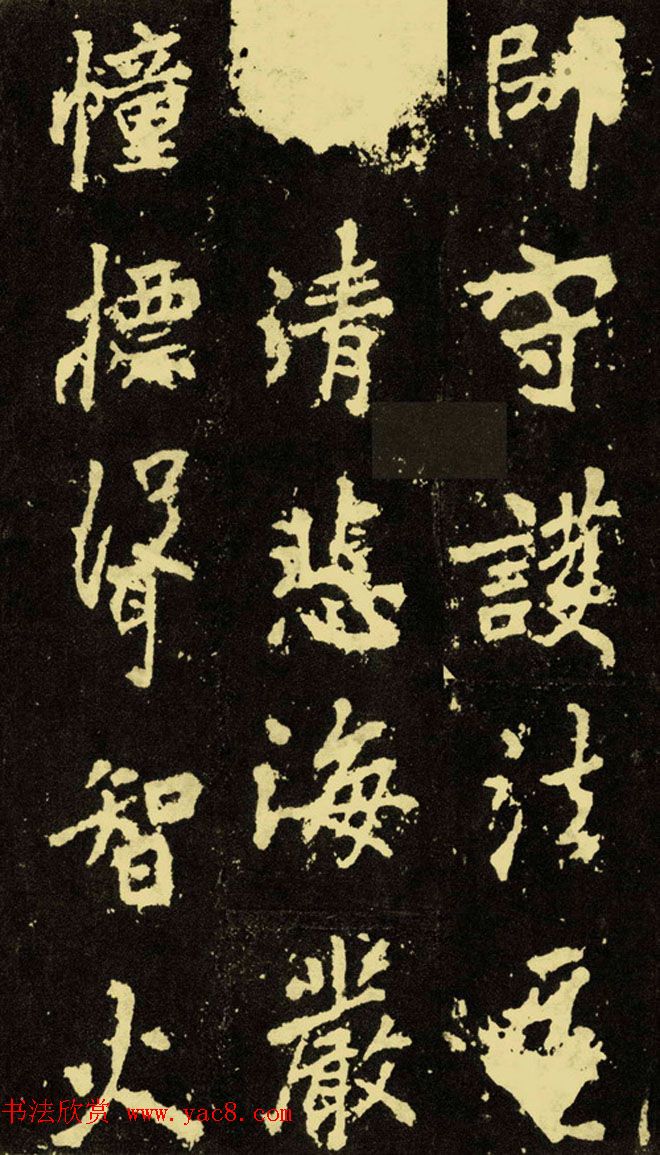 師守護法
清悲海嚴
幢摽智火
书法欣赏 www.yac8.com